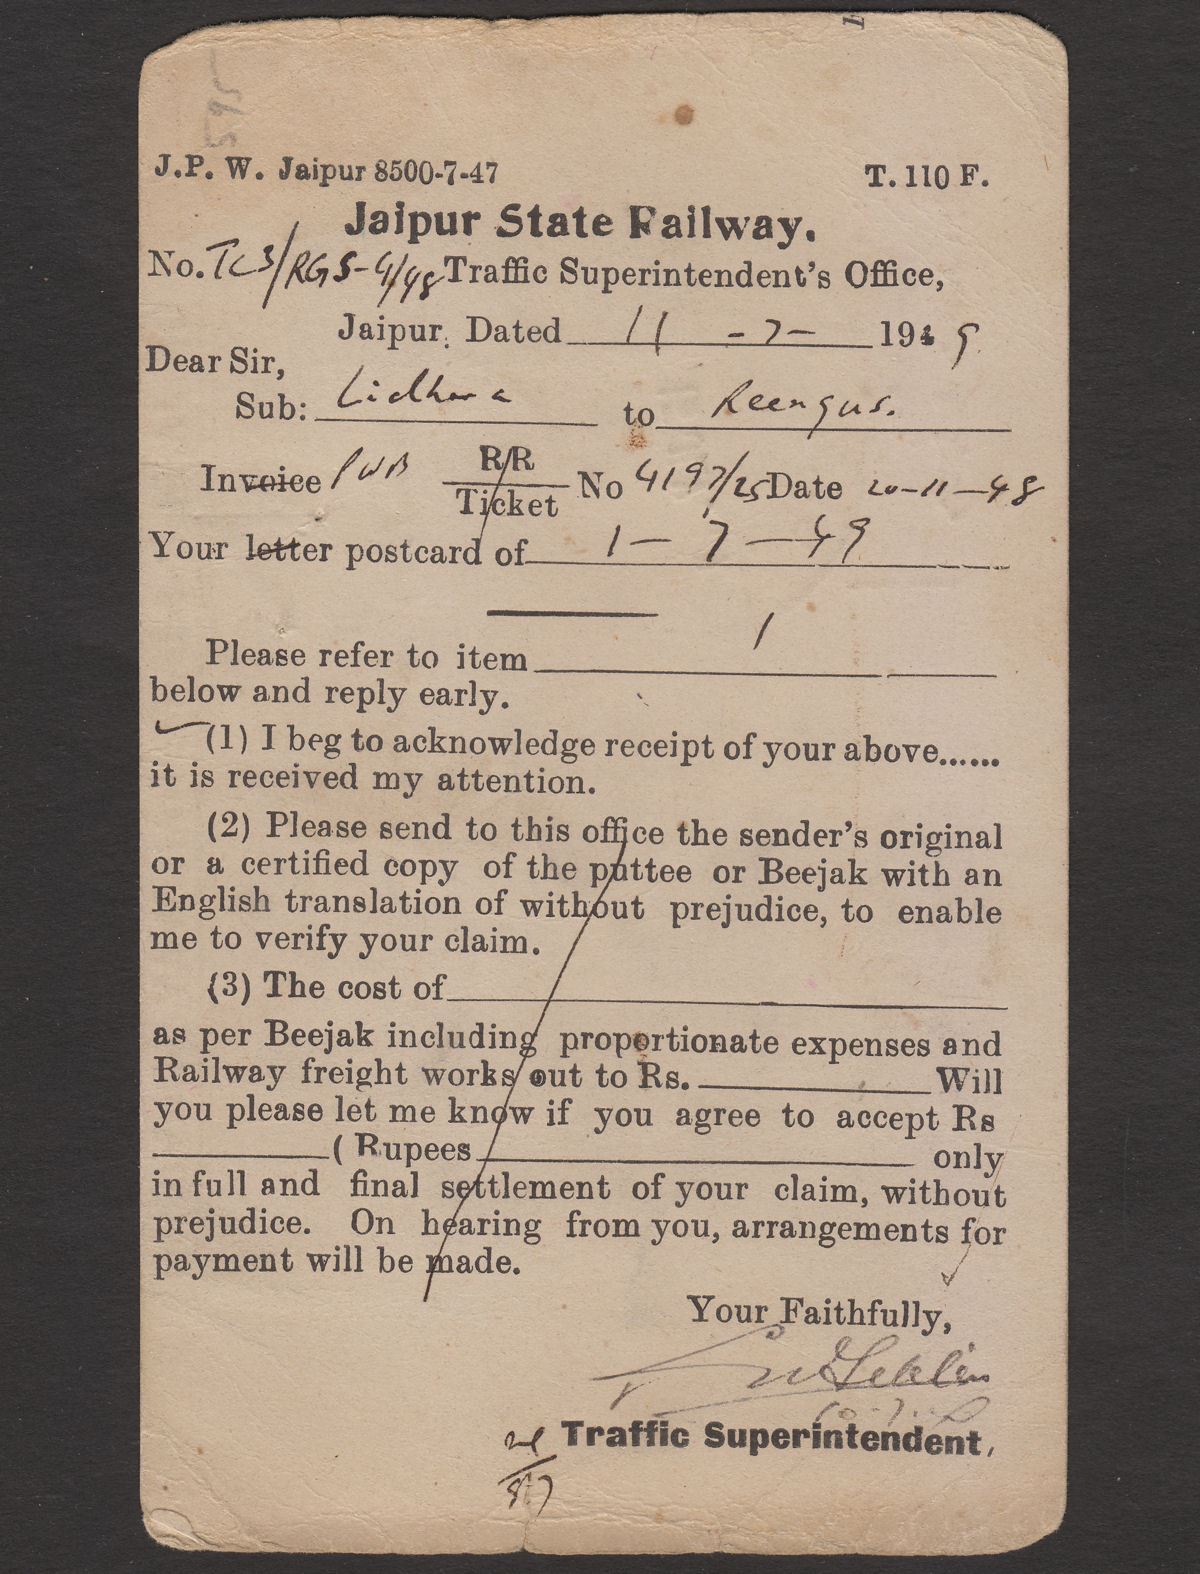 J.P. W. Jaipur 8500-7-47 T. 110 F.
Jaipur State Railway.
No. TC3/RGS-4/48 Traffic Superintendent's Office,
Jaipur. Dated 11 - 7 - 1949
Dear Sir,
Sub: to Reengus.
Invoice PWB R/R
Ticket No 4197/25 Date 20-11-48
Your letter postcard of 1-7-49
Please refer to item 1
below and reply early.
(1) I beg to acknowledge receipt of your above......
it is received my attention.
(2) Please send to this office the sender's original
or a certified copy of the puttee or Beejak with an
English translation of without prejudice, to enable
me to verify your claim.
(3) The cost of
as per Beejak including proportionate expenses and
Railway freight works out to Rs. Will
you please let me know if you agree to accept Rs
( Rupees only
in full and final settlement of your claim, without
prejudice. On hearing from you, arrangements for
payment will be made.
Your Faithfully,
Traffic Superintendent,